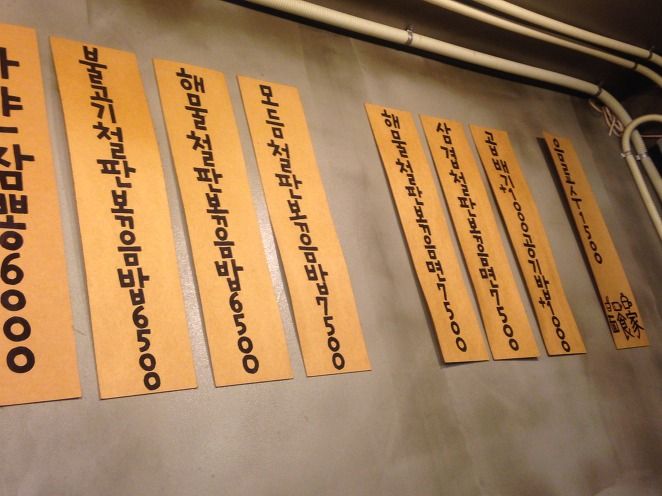 짬뽕6000
불고기철판볶음밥6500
해물철판볶음밥6500
모듬철판볶음밥7500
해물철판볶음면7500
삼겹철판볶음면7500
곱빼기1000공기밥1000
음료수1500